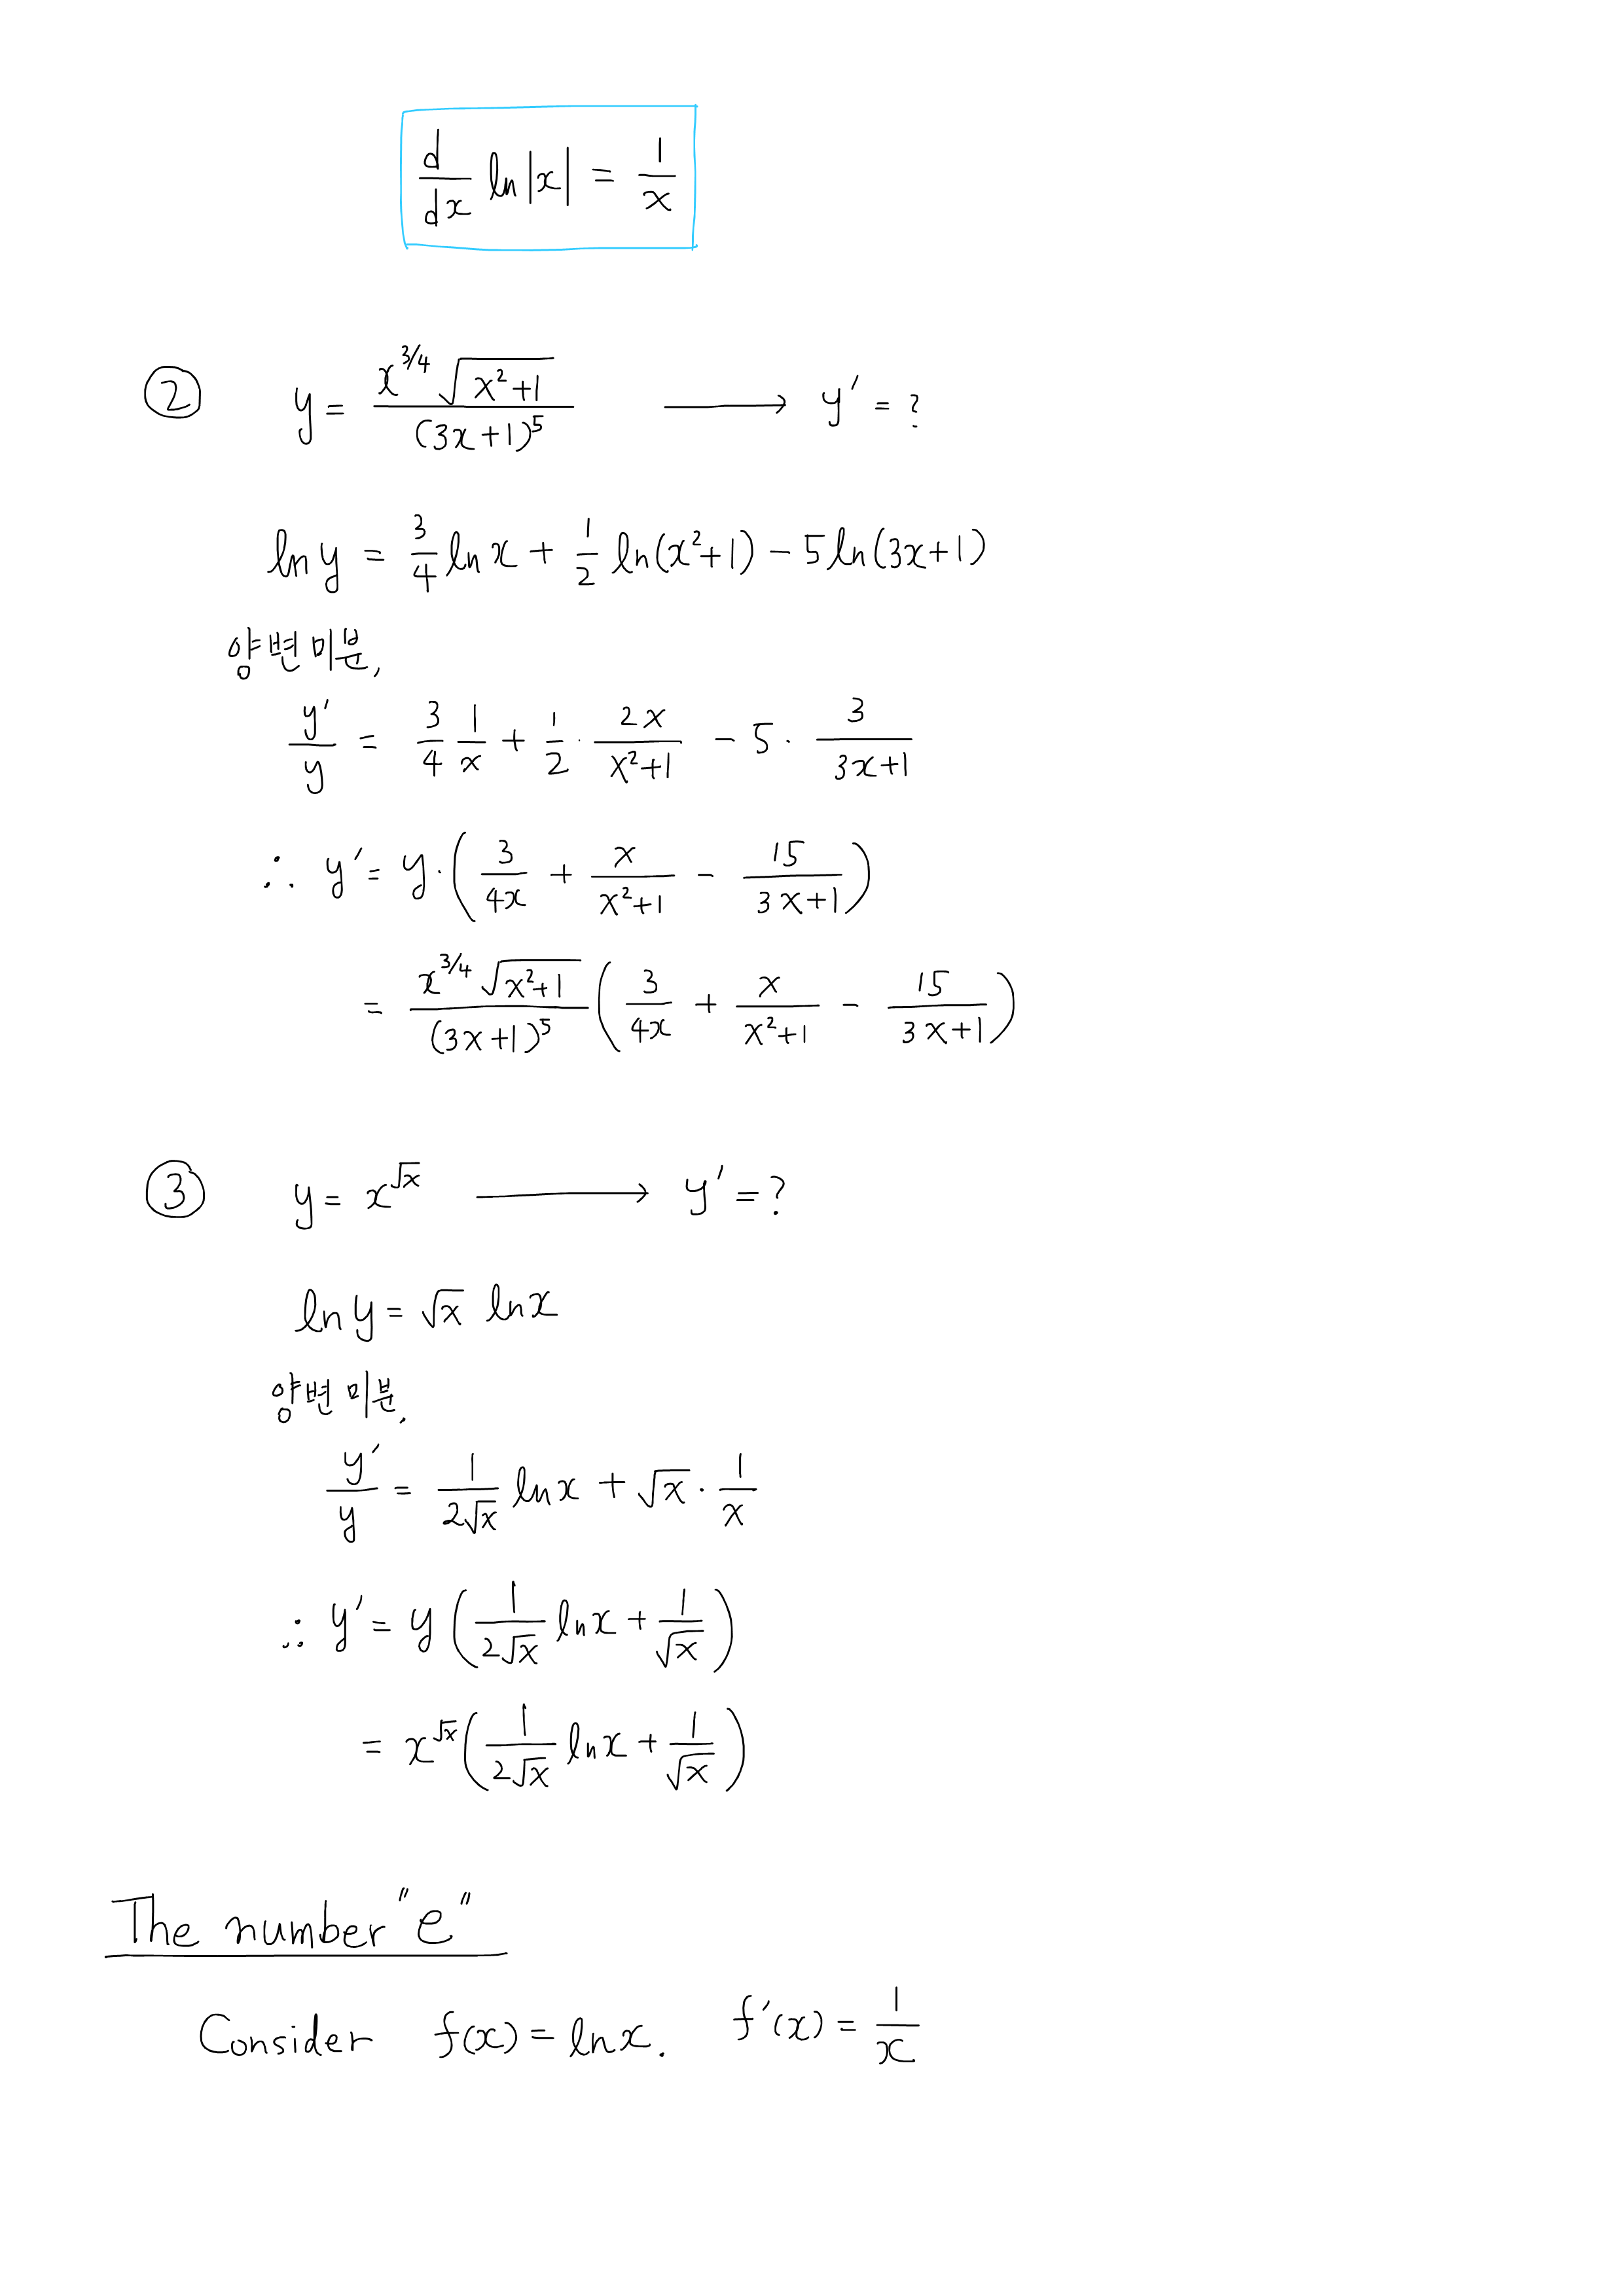 d/dx ln|x| = 1/x
② y = x^{3/4} √(x²+1) / (3x+1)⁵ ⟶ y′ = ?
ln y = 3/4 ln x + 1/2 ln(x²+1) − 5 ln(3x+1)
양변 미분,
y′/y = 3/4 1/x + 1/2 · 2x/(x²+1) − 5 · 3/(3x+1)
∴ y′ = y · (3/4x + x/(x²+1) − 15/(3x+1))
= x^{3/4} √(x²+1) / (3x+1)⁵ (3/4x + x/(x²+1) − 15/(3x+1))
③ y = x^{√x} ⟶ y′ = ?
ln y = √x ln x
양변 미분.
y′/y = 1/(2√x) ln x + √x · 1/x
∴ y′ = y (1/(2√x) ln x + 1/√x)
= x^{√x} (1/(2√x) ln x + 1/√x)
The number "e"
Consider f(x) = ln x. f′(x) = 1/x